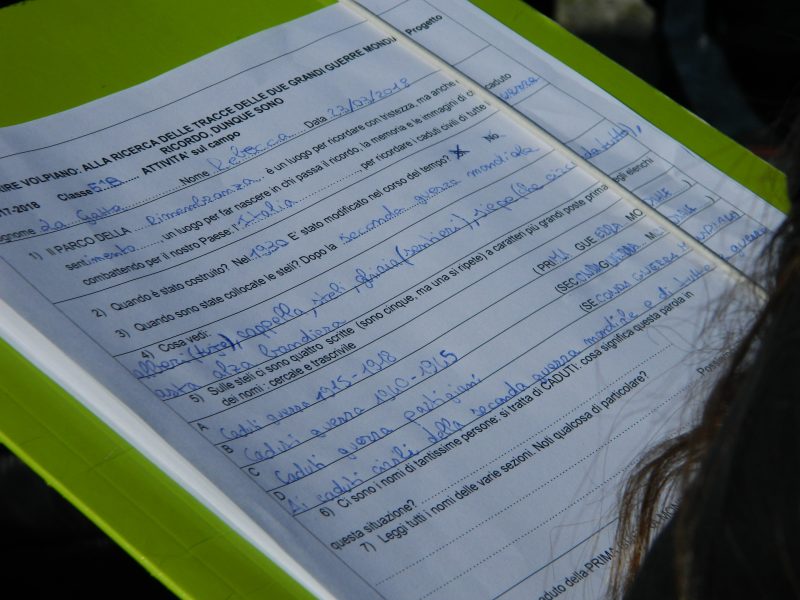 IRE VOLPIANO: ALLA RICERCA DELLE TRACCE DELLE DUE GRANDI GUERRE MONDI Progetto
RICORDO, DUNQUE SONO
17-2018 Classe 5ªB ATTIVITA' sul campo
ognome La Gatta Nome Rebecca Data 23/03/2018
1) Il PARCO DELLA Rimembranza è un luogo per ricordare con tristezza, ma anche caduto
sentimento, un luogo per far nascere in chi passa il ricordo, la memoria e le immagini di chi guerra
combattendo per il nostro Paese: l'Italia, per ricordare i caduti civili di tutte
2) Quando è stato costruito? Nel 1930 E' stato modificato nel corso del tempo? X No
3) Quando sono state collocate le steli? Dopo la seconda guerra mondiale
4) Cosa vedi:
alberi, cappella, steli, ghiaia (sentieri), siepe
asta alza bandiera
5) Sulle steli ci sono quattro scritte (sono cinque, ma una si ripete) a caratteri più grandi poste prima degli elenchi
dei nomi: cercale e trascrivile
A Caduti guerra 1915-1918
B Caduti guerra 1940-1945
C Caduti guerra partigiani
D Ai caduti civili della seconda guerra mondiale e di tutte guerre
6) Ci sono i nomi di tantissime persone: si tratta di CADUTI: cosa significa questa parola in
questa situazione?
7) Leggi tutti i nomi delle varie sezioni. Noti qualcosa di particolare?
caduto della PRIMA